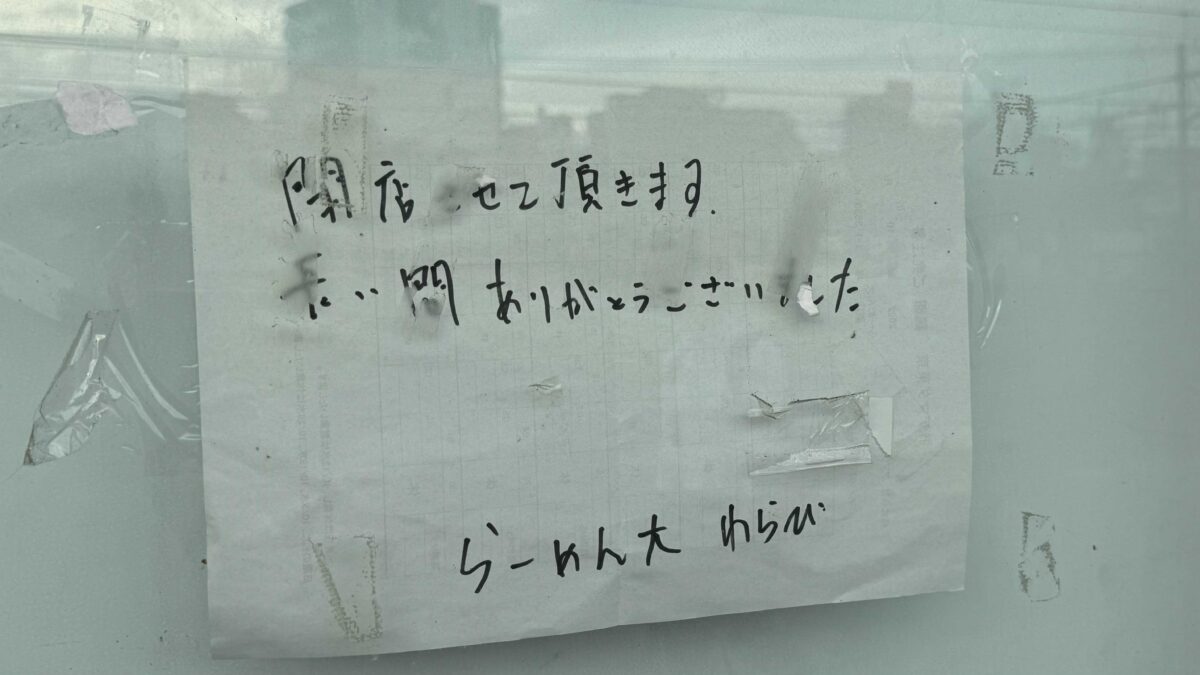 閉店させて頂きます.
長い間ありがとうございました
らーめん大 わらび